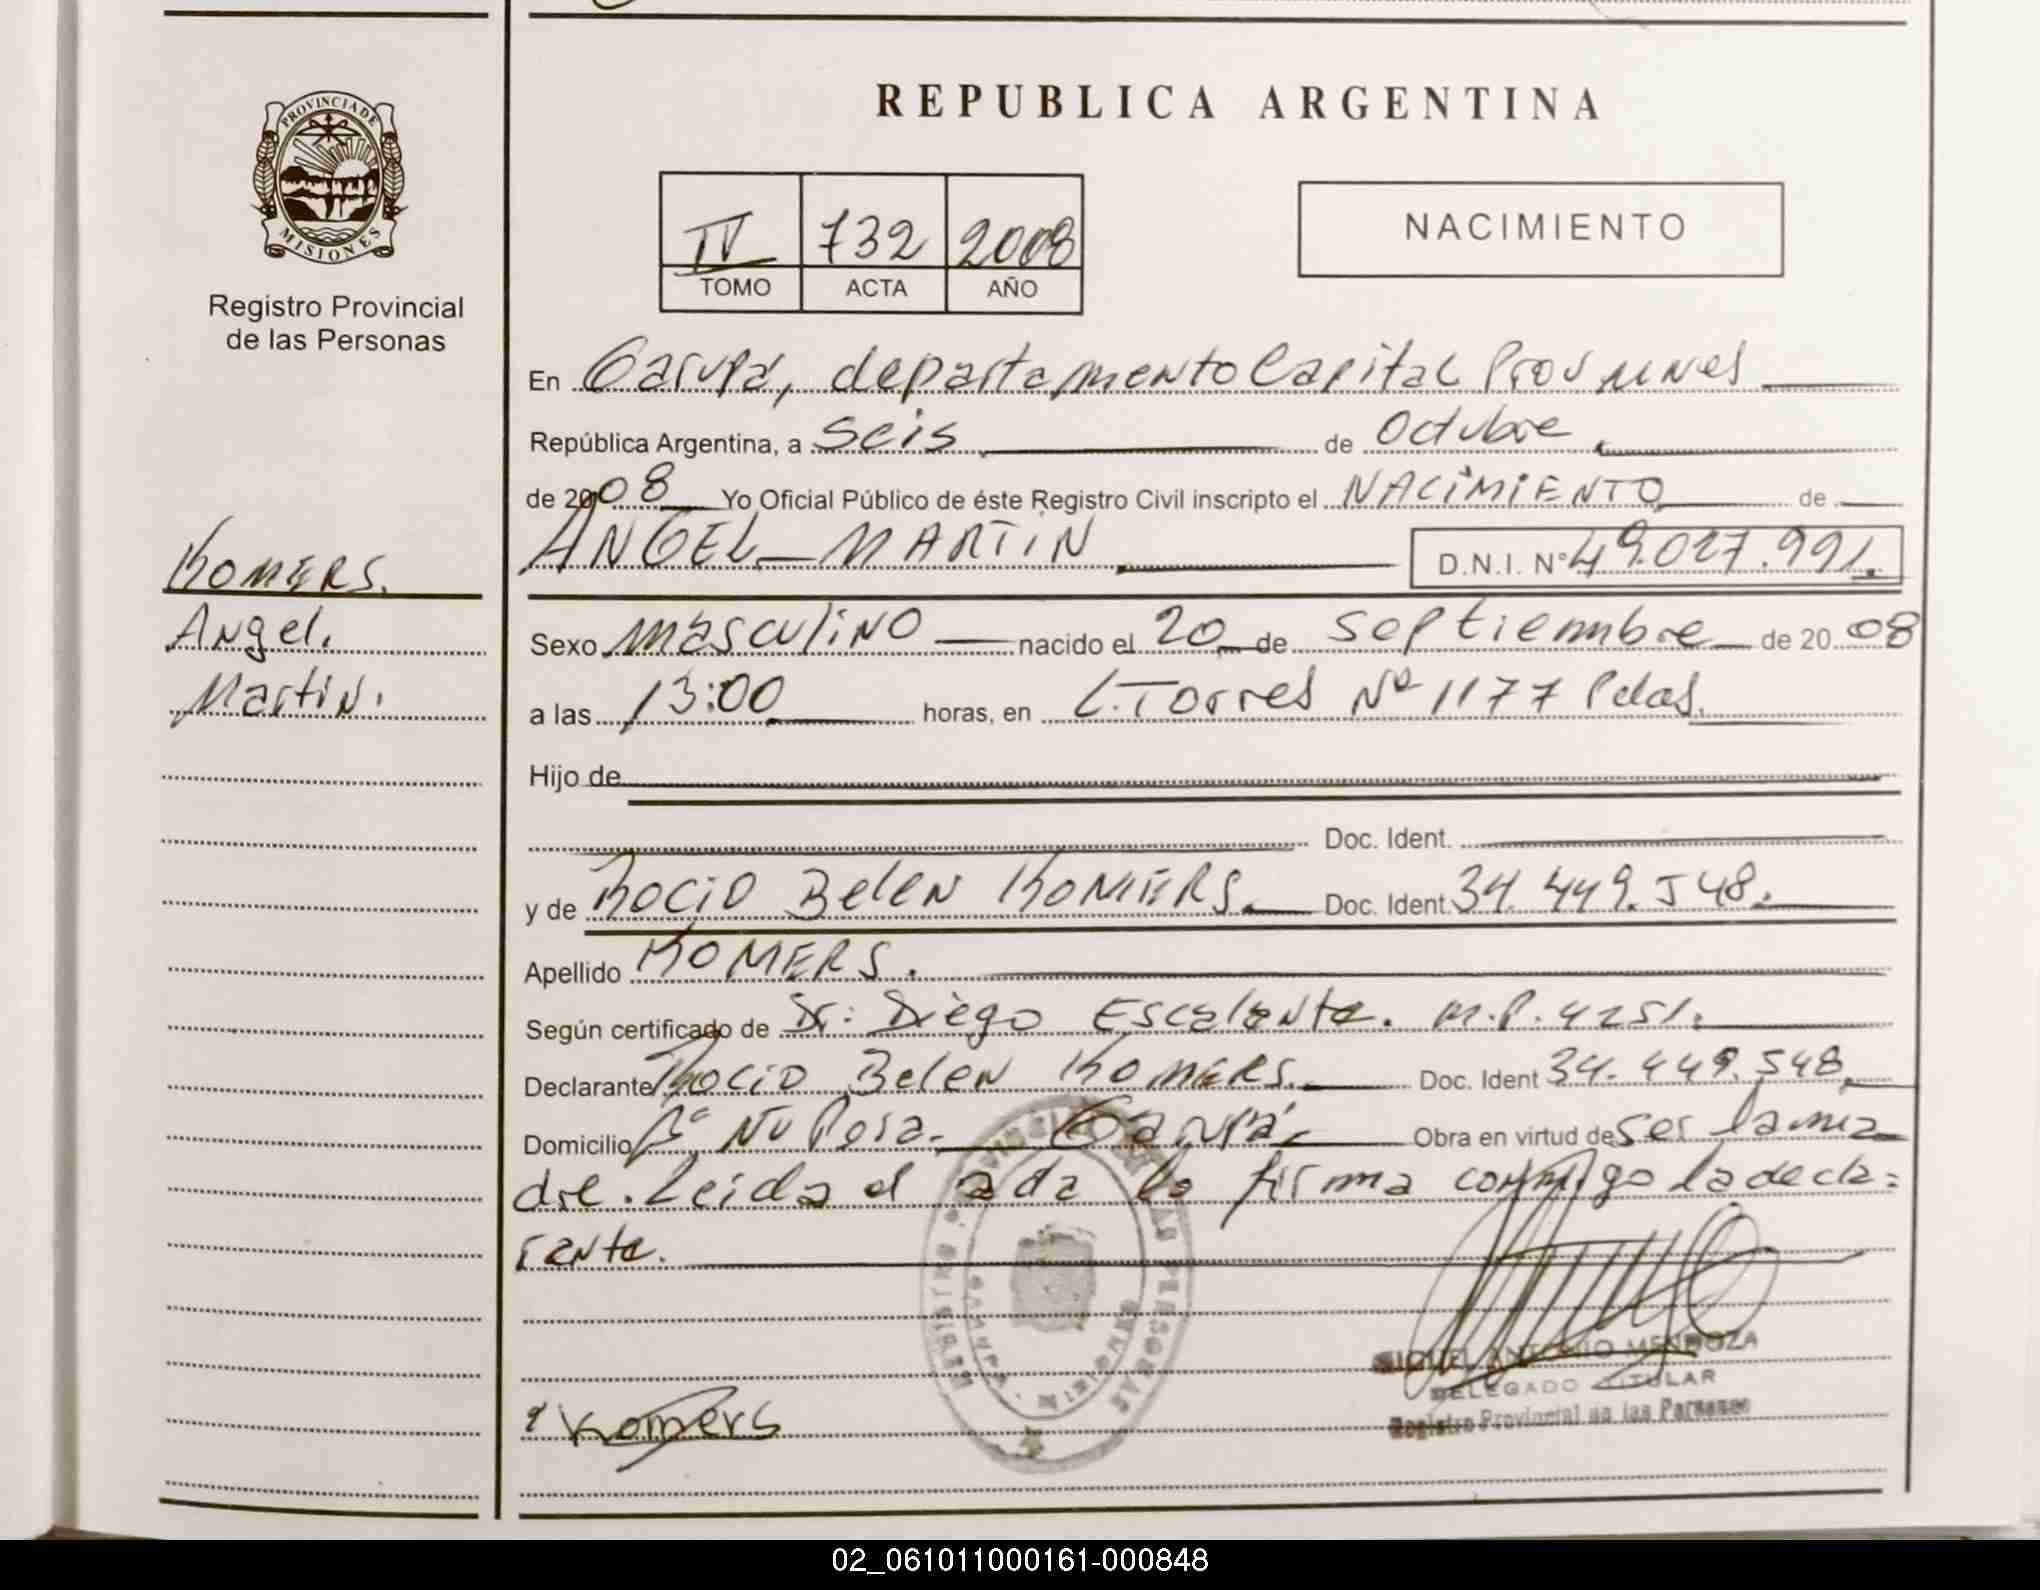 REPUBLICA ARGENTINA
PROVINCIA DE
MISIONES
Registro Provincial
de las Personas
IV 732 2008
TOMO ACTA AÑO
NACIMIENTO
En Garupá, departamento Capital Prov
República Argentina, a seis de Octubre
de 2008 Yo Oficial Público de éste Registro Civil inscripto el NACIMIENTO de
KOMERS.
ANGEL MARTIN D.N.I. Nº 49.027.991.
Angel.
Sexo Masculino nacido el 20 de septiembre de 20 08
Martin.
a las 13:00 horas, en L. Torres Nº 1177 Pdas.
Hijo de
Doc. Ident.
y de Rocio Belen KOMERS. Doc. Ident. 34.449.548.
Apellido KOMERS.
Según certificado de Dr: Diego Escalante. M.P. 4251.
Declarante Rocio Belen KOMERS. Doc. Ident 34.449.548.
Domicilio Bº Ñu Pora. Garupá. Obra en virtud de ser la ma
dre. Leida el acta la firma conmigo la decla=
rante.
MIGUEL ANTONIO MENDOZA
DELEGADO TITULAR
Registro Provincial de las Personas
Komers
02_061011000161-000848